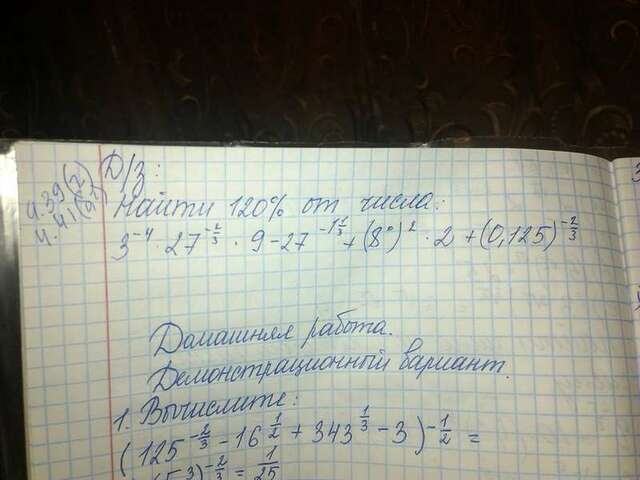 4.39(2)
4.41(2)
Д/З:
Найти 120% от числа:
3⁻⁴ · 27^(-2/3) · 9 - 27^(-1 1/3) + (8⁰)² · 2 + (0,125)^(-2/3)
Домашняя работа.
Демонстрационный вариант.
1. Вычислите:
(125^(-2/3) - 16^(1/2) + 343^(1/3) - 3)^(-1/2) =
(5³)^(-2/3) = 1/25